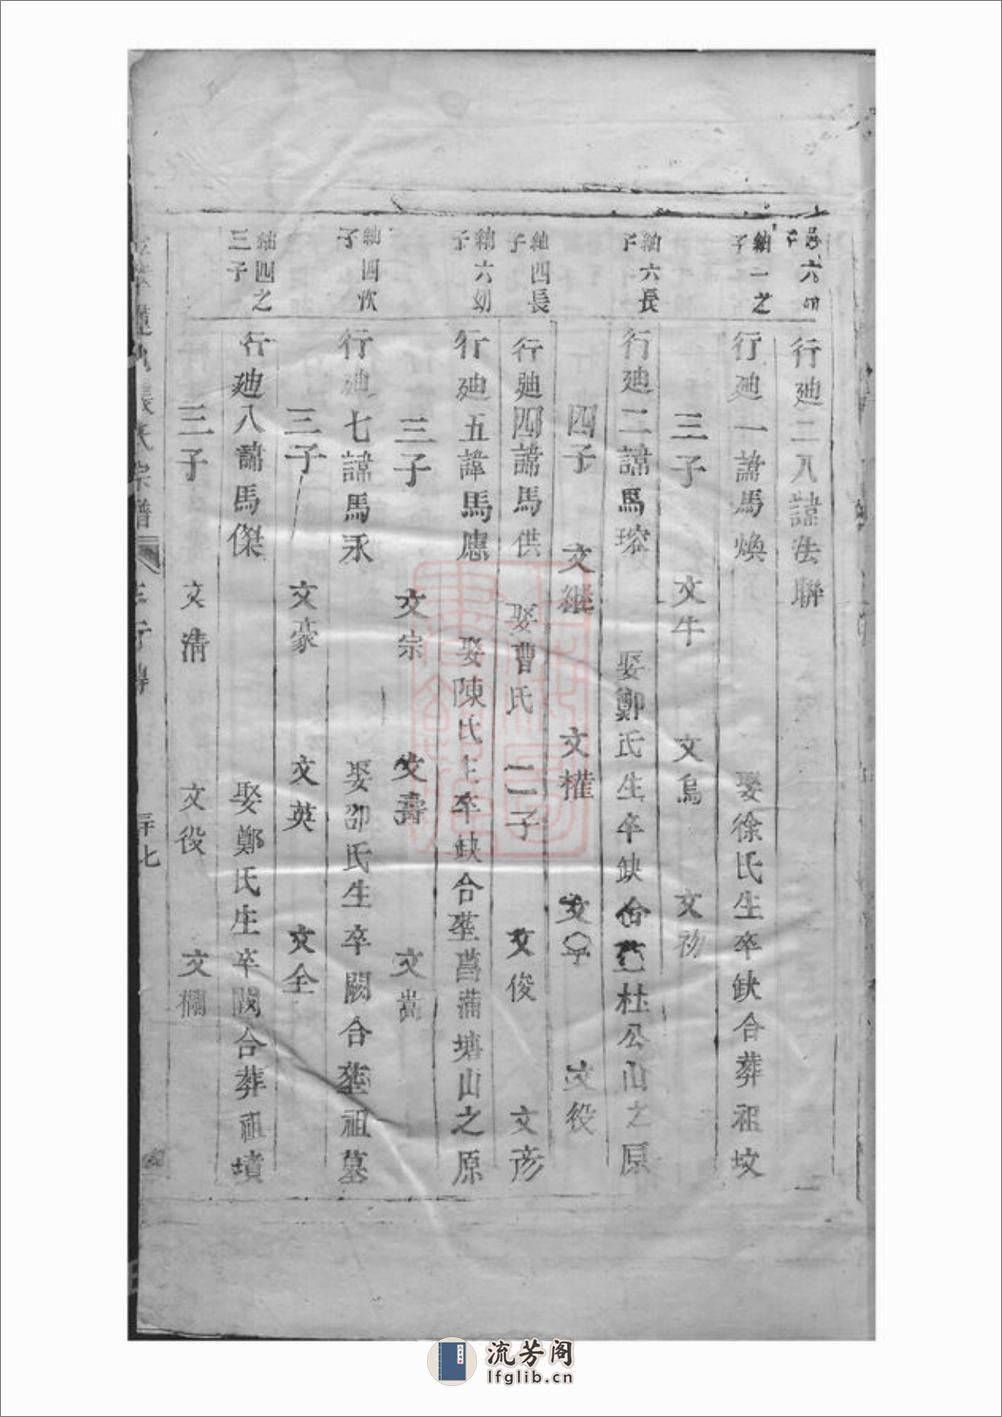 六幼子
行廸二八諱法聯
紬一之子
行廸一諱馬煥
娶徐氏生卒缺合葬祖坟
三子
文牛
文烏
文初
紬六長子
行廸二諱馬瑢
娶鄭氏生卒缺合塟杜公山之原
四子
文繼
文權
文亨
文役
紬四長子
行廸四諱馬供
娶曹氏
二子
文俊
文彦
紬六幼子
行廸五諱馬應
娶陳氏生卒缺合塟菖蒲塘山之原
三子
文宗
文壽
文嵩
紬四次子
行廸七諱馬永
娶邵氏生卒闕合塟祖墓
三子
文豪
文英
文全
紬四之三子
行廸八諱馬傑
娶鄭氏生卒闕合葬祖墳
三子
文清
文役
文欄
氏宗譜
行傳
七
流芳阁
lfglib.cn